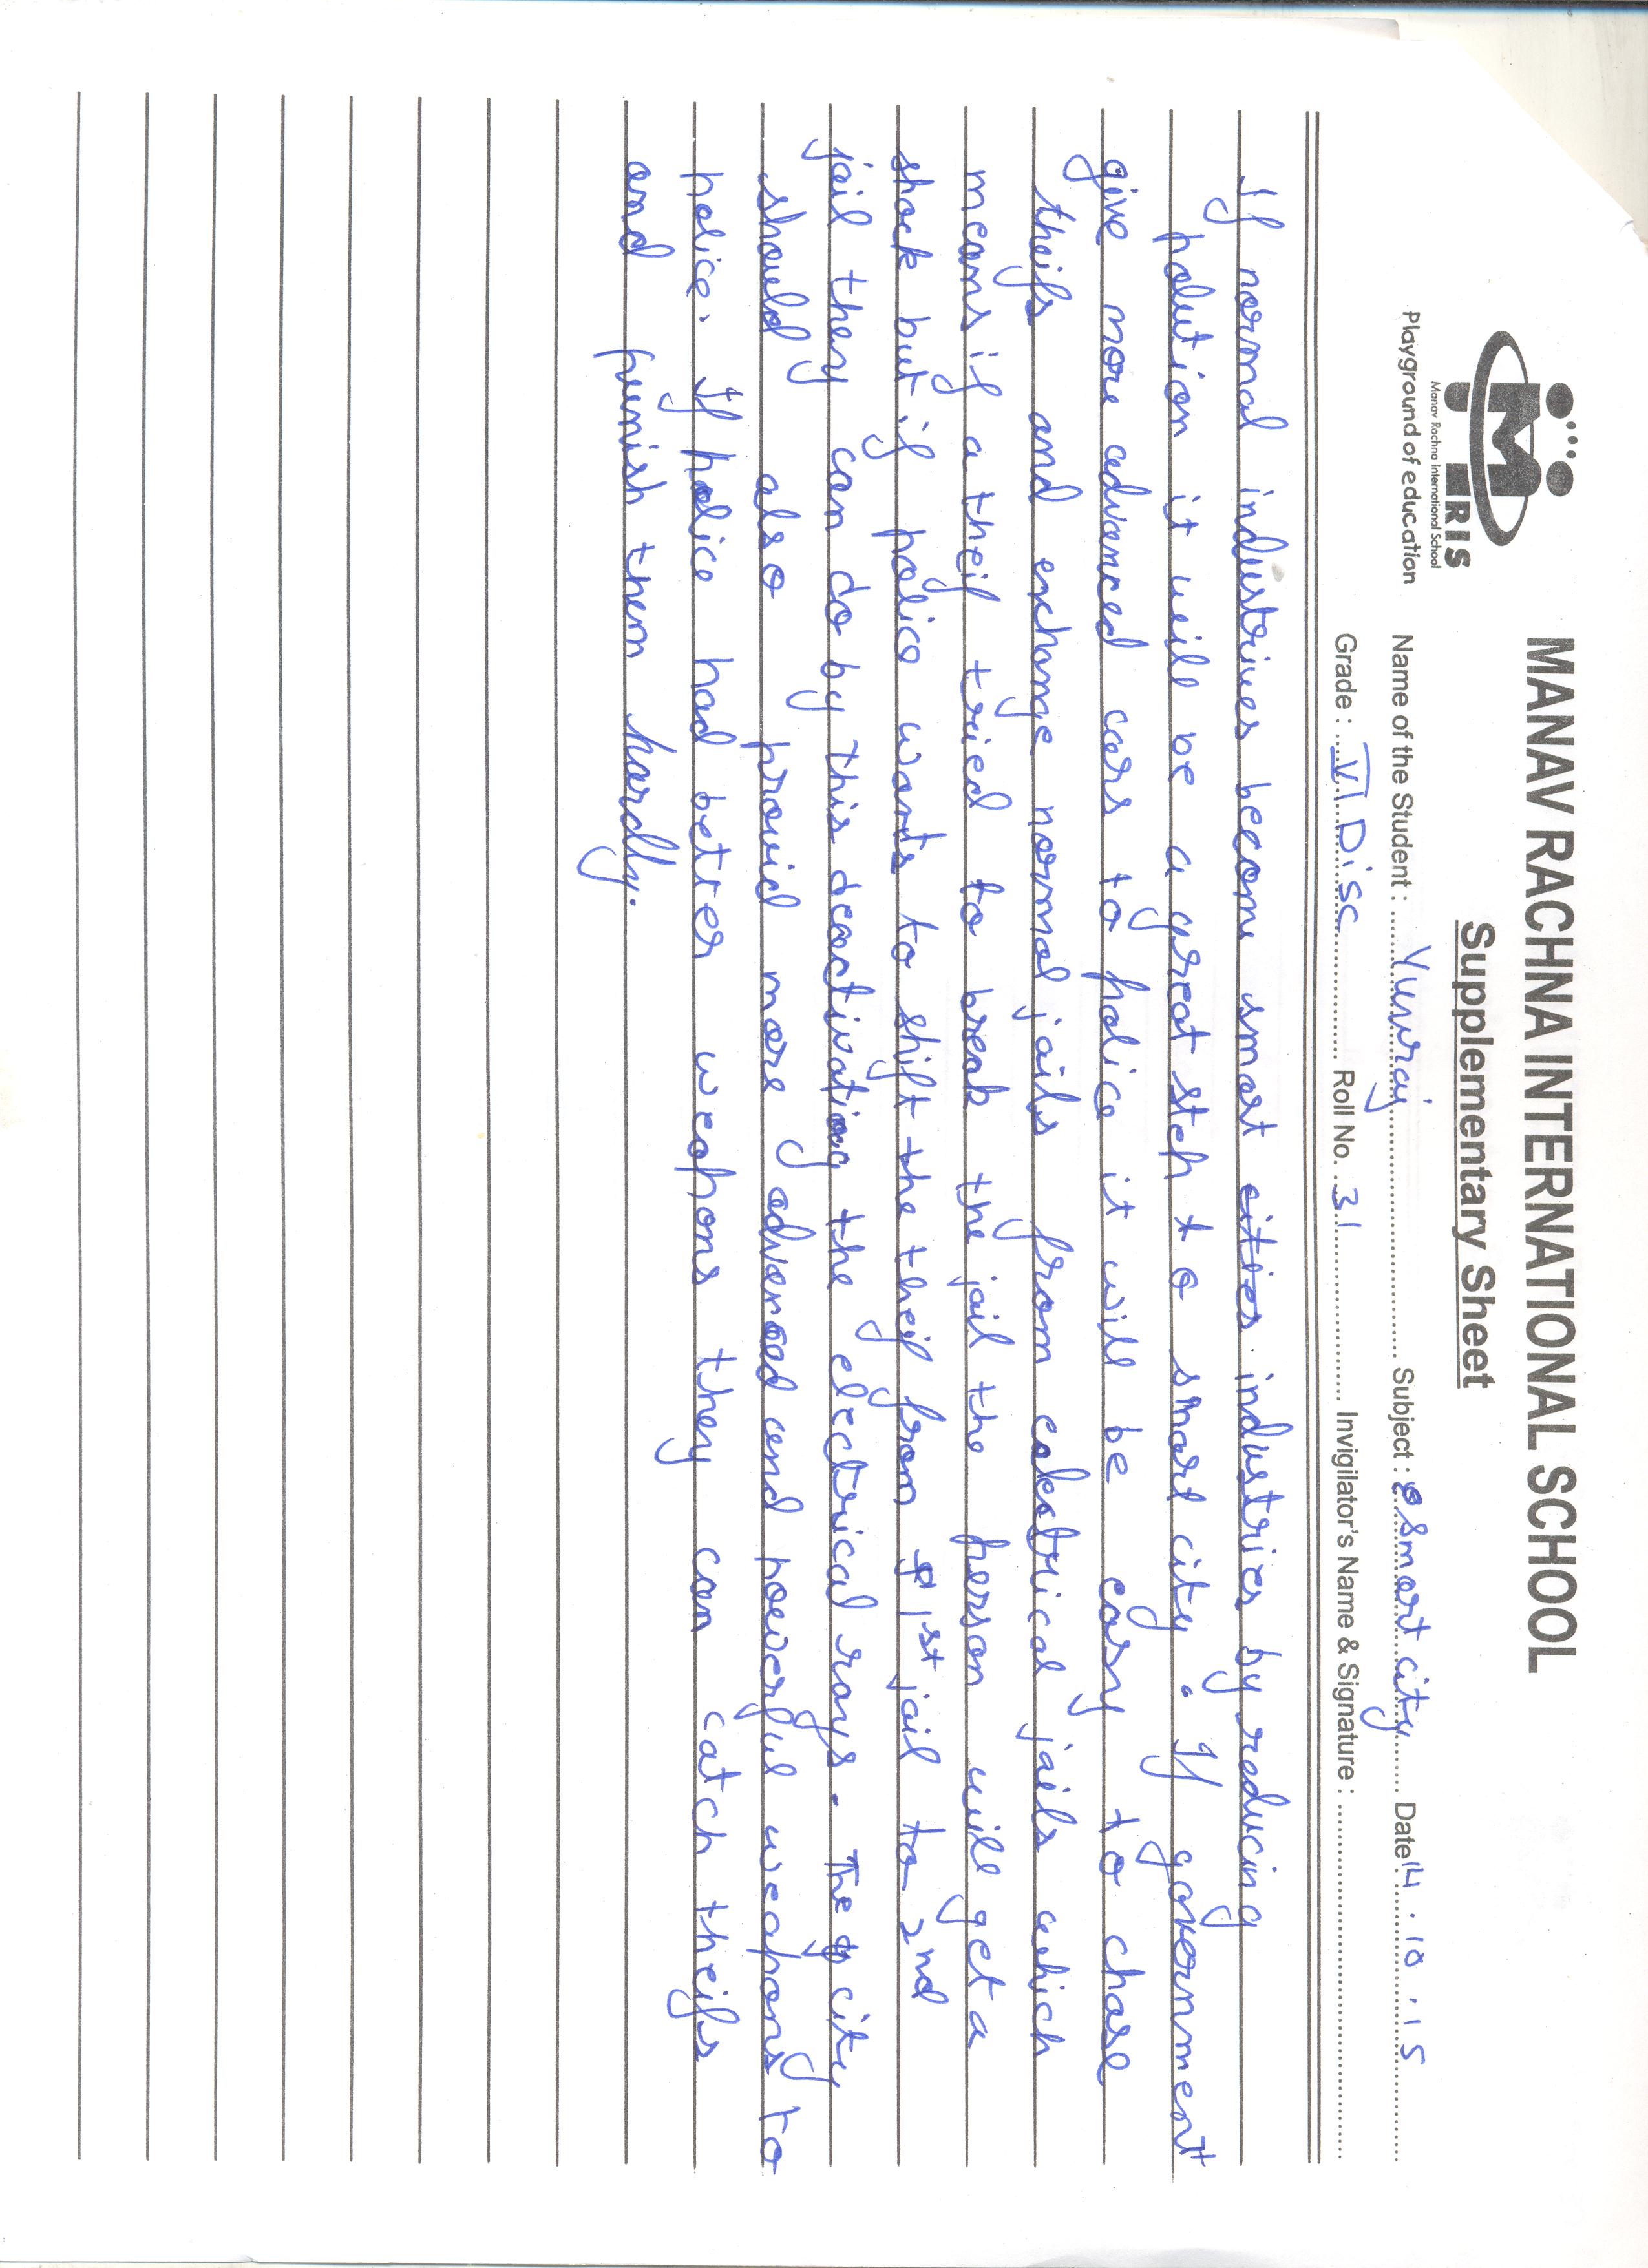 MANAV RACHNA INTERNATIONAL SCHOOL
Supplementary Sheet
M RIS
Manav Rachna International School
Playground of education
Name of the Student : Yuvraj Subject : Smart city Date 14.10.15
Grade : VI Disc Roll No. 31 Invigilator's Name & Signature :
If normal industries become smart cities industries by reducing
polution it will be a great step to smart city. If government
give more advanced cars to police it will be easy to chase
theifs and exchange normal jails from ealectrical jails which
means if a theif tried to break the jail the person will get a
shock but if police wants to shift the theif from 1st jail to 2nd
jail they can do by this deactivating the electrical rays. The city
should also provid more advanced and powerful weapons to
police. If police had better weapons they can catch theifs
and punish them hardly.